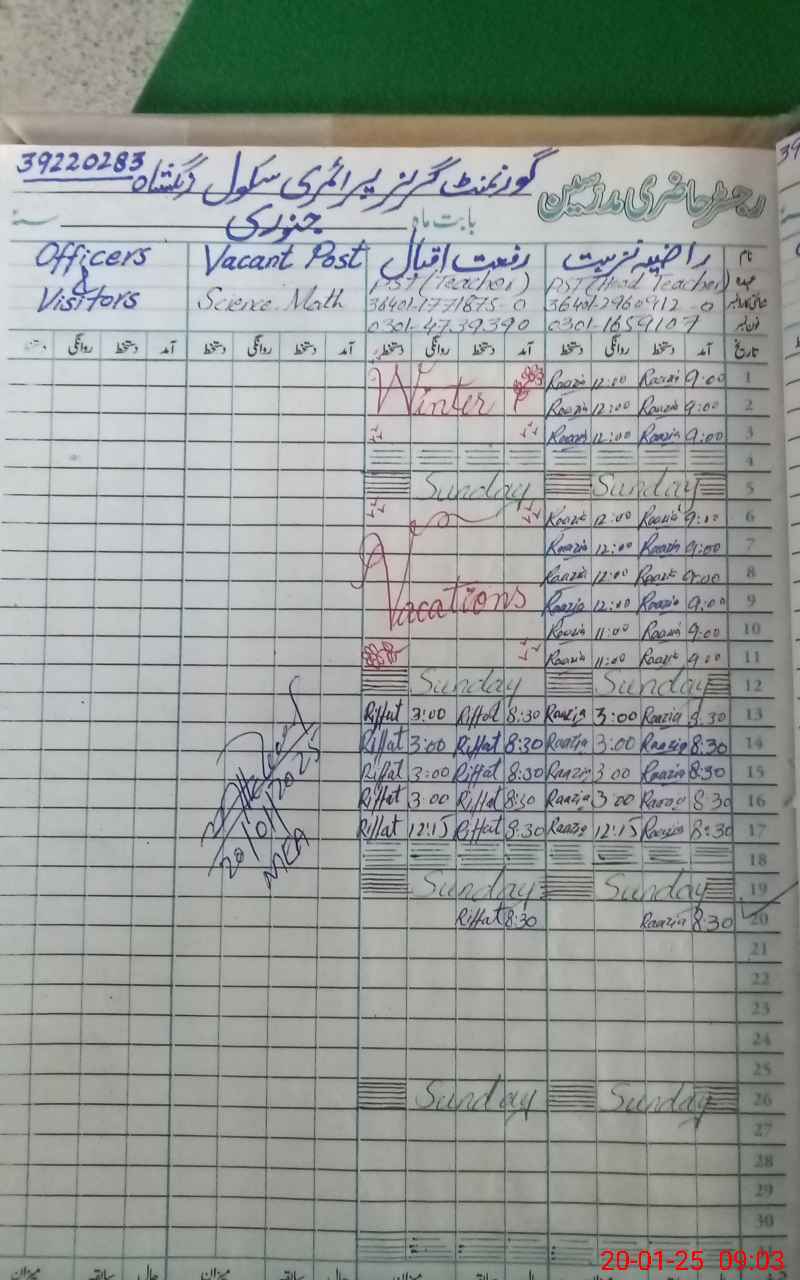 39220283 گورنمنٹ گرلز پرائمری سکول رجسٹر حاضری مدرسین
بابت ماہ جنوری سنہ
نام راضیہ نزہت رفعت اقبال Vacant Post Officers & Visitors
عہدہ PST (Head Teacher) PST (Teacher) Science Math
36401-2960912-0 36401-1771875-0
فون نمبر 0301-1659107 0301-4739390
تاریخ آمد دستخط روانگی دستخط آمد دستخط روانگی دستخط آمد دستخط روانگی دستخط آمد دستخط روانگی دستخط
1 9:00 Raazia 12:00 Raazia Winter
2 9:00 Raazia 12:00 Raazia
3 9:00 Raazia 12:00 Raazia
4
5 Sunday Sunday
6 9:00 Raazia 12:00 Raazia
7 9:00 Raazia 12:00 Raazia
8 9:00 Raazia 12:00 Raazia
9 9:00 Raazia 12:00 Raazia Vacations
10 9:00 Raazia 11:00 Raazia
11 9:00 Raazia 11:00 Raazia
12 Sunday Sunday
13 8:30 Raazia 3:00 Raazia 8:30 Riffat 3:00 Riffat
14 8:30 Raazia 3:00 Raazia 8:30 Riffat 3:00 Riffat
15 8:30 Raazia 3:00 Raazia 8:30 Riffat 3:00 Riffat
16 8:30 Raazia 3:00 Raazia 8:30 Riffat 3:00 Riffat
17 8:30 Raazia 12:15 Raazia 8:30 Riffat 12:15 Riffat
20/01/2025
MEA
18
19 Sunday Sunday
20 8:30 Raazia 8:30 Riffat
21
22
23
24
25
26 Sunday Sunday
27
28
29
30
31
میزان سابقہ حال میزان سابقہ حال میزان
20-01-25 09:03